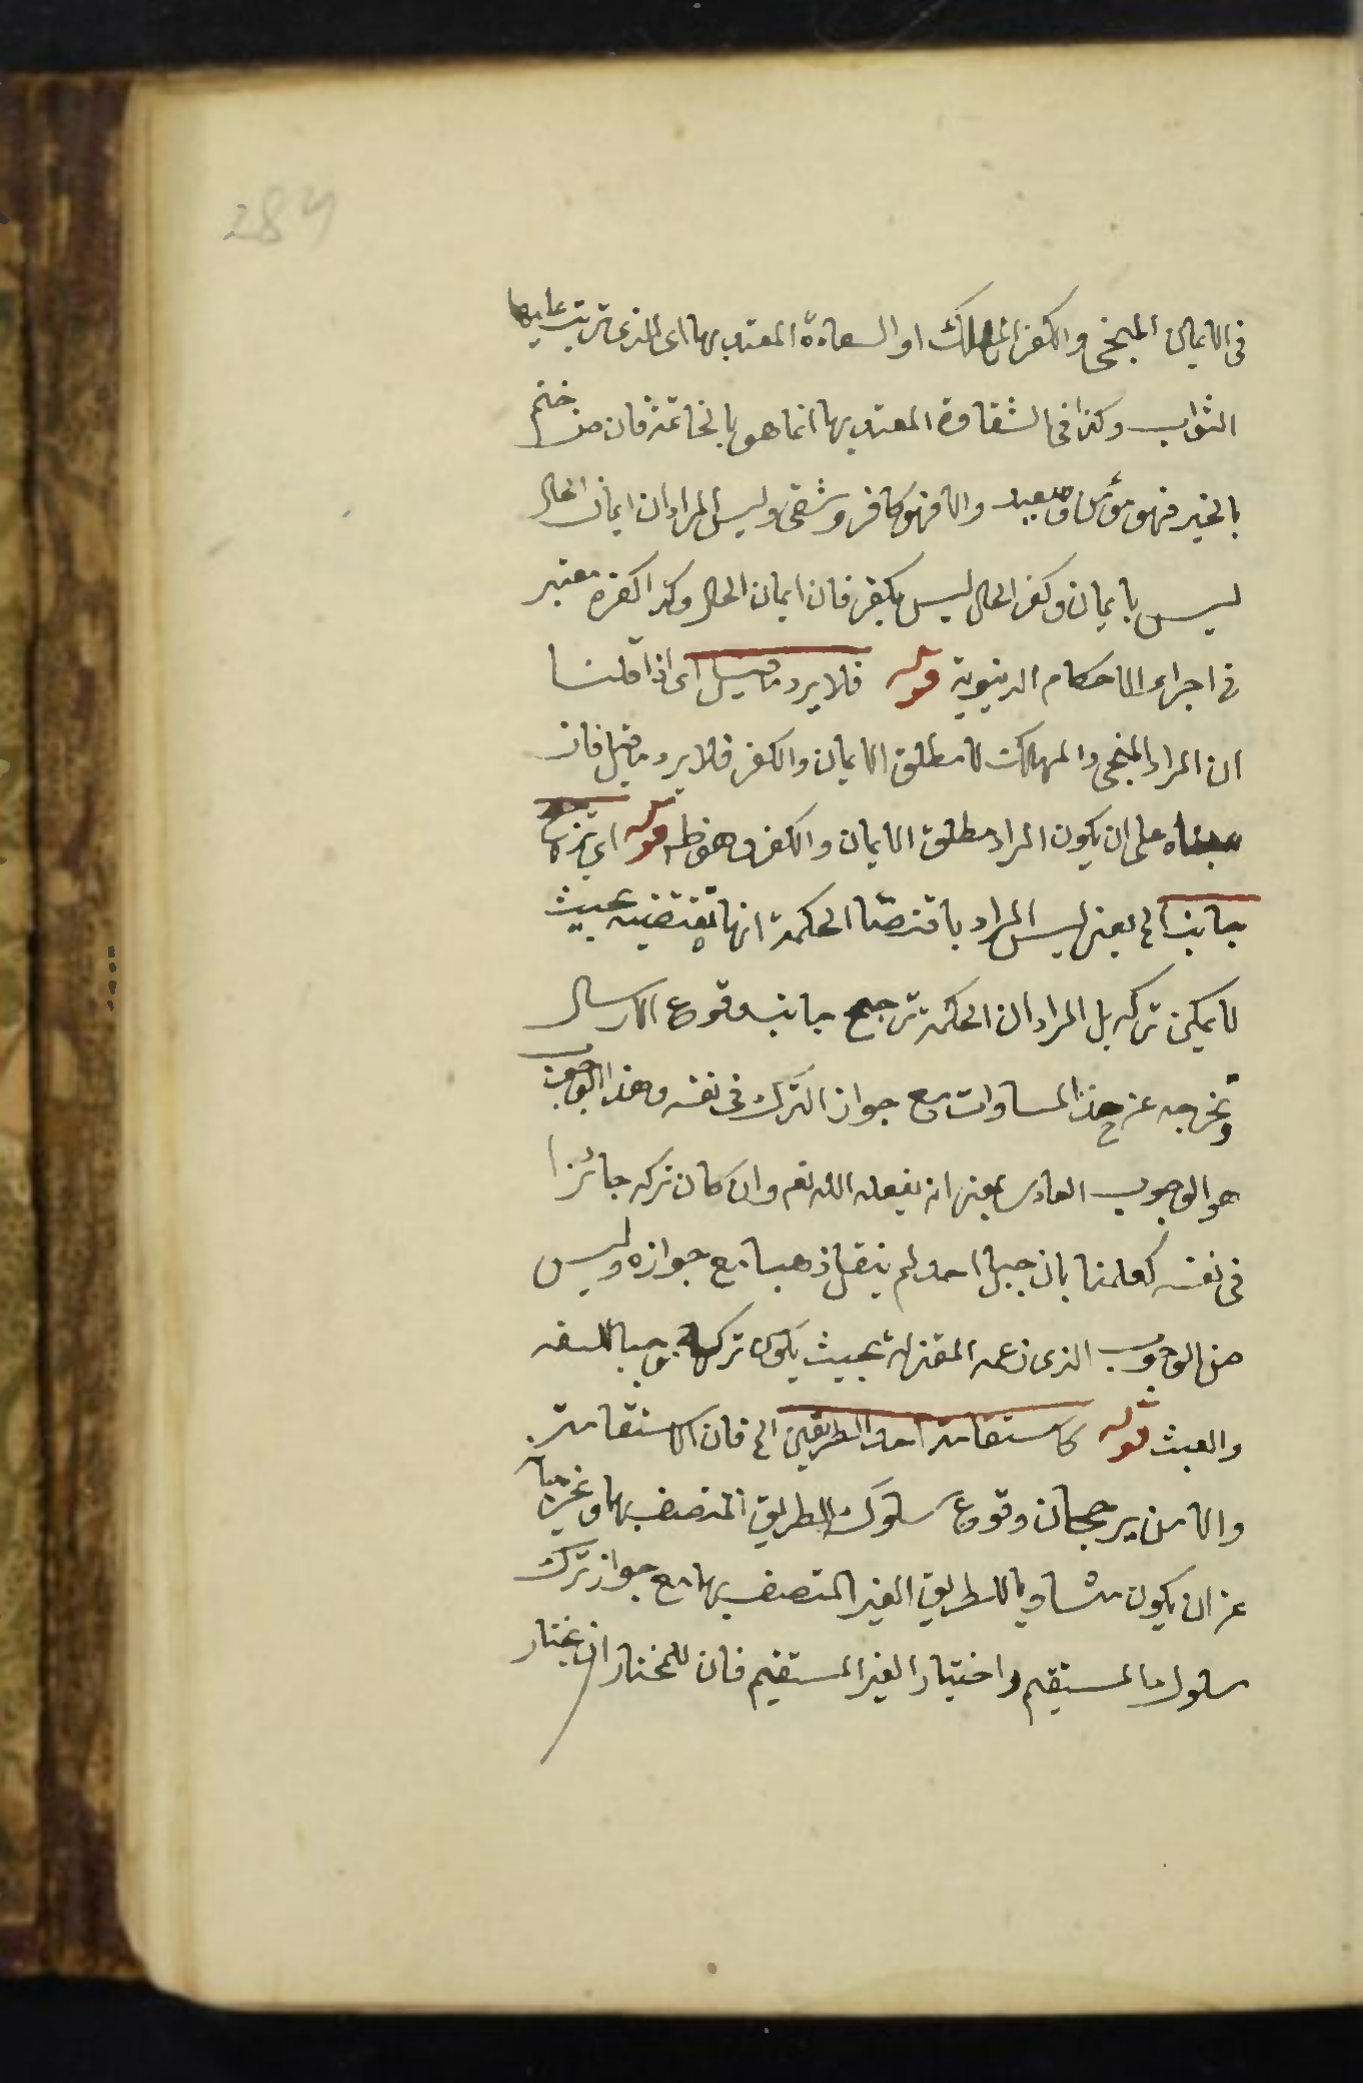 284
فى الايمان المنجى والكفر المهلك او السعادة المعتد بها اى الذى ترتب عليها
الثواب وكذا فى الشقاوة المعتد بها انما هو بالخاتمة فان من ختم
بالخير فهو مؤمن وسعيد والا فهو كافر وشقى وليس المراد ان ايمان الحال
ليس بايمان وكفر الحال ليس بكفر فان ايمان الحال وكذا كفره معتبر
فى اجراء الاحكام الدنيوية قوله فلا يرد ما قيل اى اذا قلنا
ان المراد المنجى والمهلك لا مطلق الايمان والكفر فلا يرد ما قيل فان
مبناه على ان يكون المراد مطلق الايمان والكفر وهو ظ قوله اى ترجح
جانب الخ يعنى ليس المراد باقتضا الحكمة انها تقتضيه بحيث
لا يمكن تركه بل المراد ان الحكمة ترجح جانب وقوع الارسال
وتخرجه عن حد المساوات مع جواز الترك فى نفسه وهذا الوجوب
هو الوجوب العادى بمعنى انه يفعله الله تعم وان كان تركه جائزا
فى نفسه كعلمنا بان جبل احد لم ينقل ذهبا مع جوازه وليس
من الوجوب الذى زعمه المعتزلة بحيث يكون تركه موجبا للسفه
والعبث قوله كاستقامة احد الطريقين الخ فان الاستقامة
والامن يرجحان وقوع سلوك الطريق المتصف بهما ويخرجانه
عن ان يكون متساويا للطريق الغير المتصف بهما مع جواز ترك
سلوك المستقيم واختيار الغير المستقيم فان للمختار ان يختار